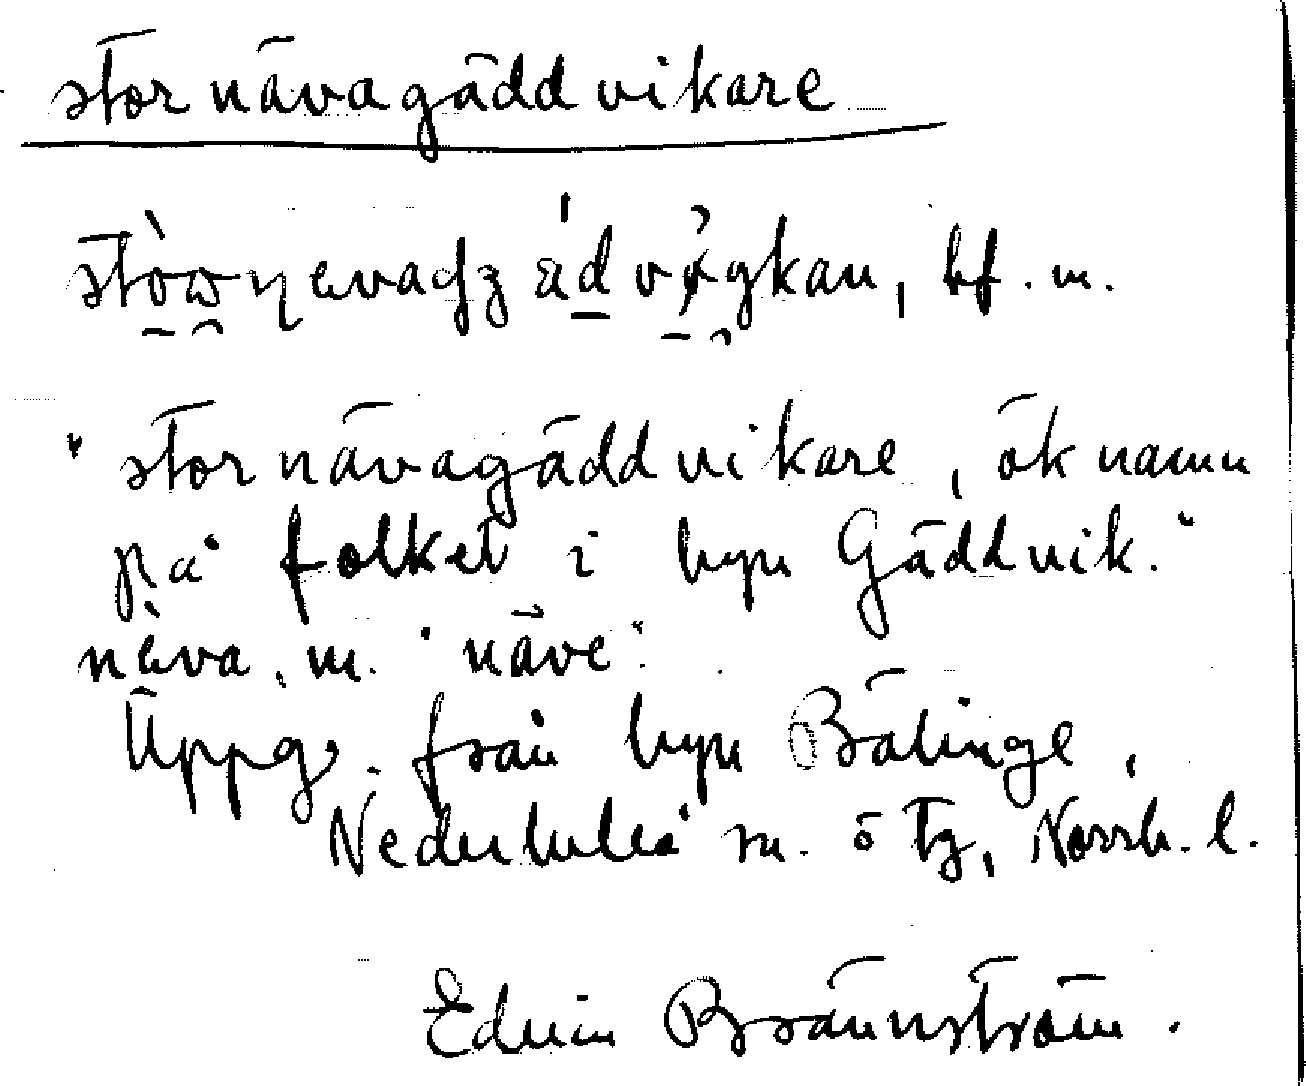 stornävagäddvikare
bf. m.
"stornävagäddvikare, öknamn
på folket i byn Gäddvik."
näva, m. "näve".
Uppg. från byn Bälinge,
Nederluleå sn. o tg, Norrb. l.
Edvin Brännström.